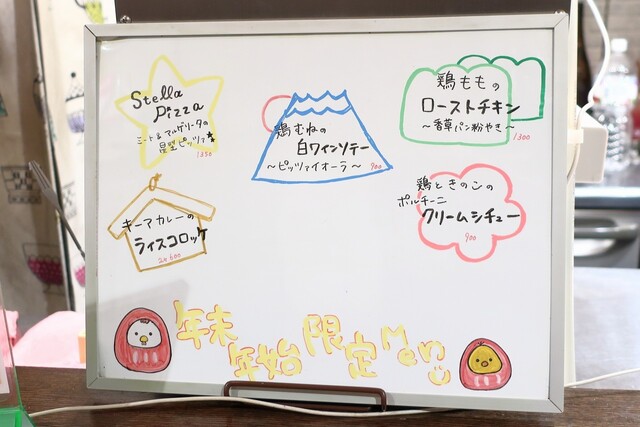 Stella
Pizza
ミート&マルゲリータの
星型ピッツァ
1350
鶏むねの
白ワインソテー
～ピッツァイオーラ～
900
鶏ももの
ローストチキン
～香草パン粉やき～
1300
キーマカレーの
ライスコロッケ
2コ 600
鶏ときのこの
ポルチーニ
クリームシチュー
900
年末
年始
限定
Menu